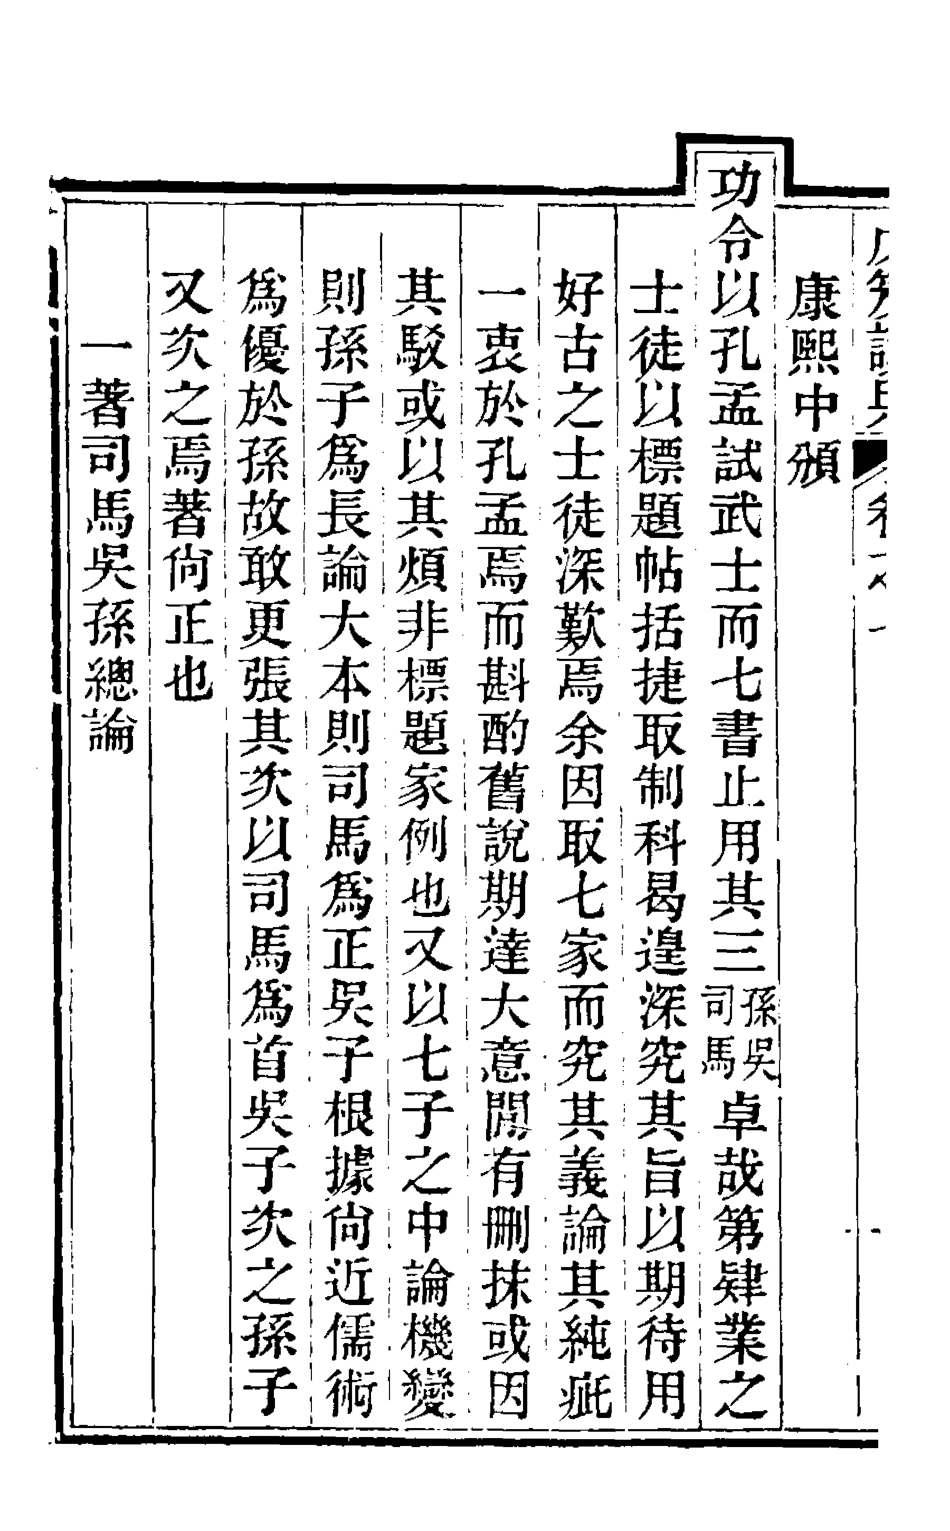 康熙中頒
功令以孔孟試武士而七書止用其三孫吳司馬卓哉第肄業之
士徒以標題帖括捷取制科曷遑深究其旨以期待用
好古之士徒深歎焉余因取七家而究其義論其純疵
一衷於孔孟焉而斟酌舊說期達大意間有刪抹或因
其駁或以其煩非標題家例也又以七子之中論機變
則孫子爲長論大本則司馬爲正吳子根據尙近儒術
爲優於孫故敢更張其次以司馬爲首吳子次之孫子
又次之焉著尙正也
一著司馬吳孫總論